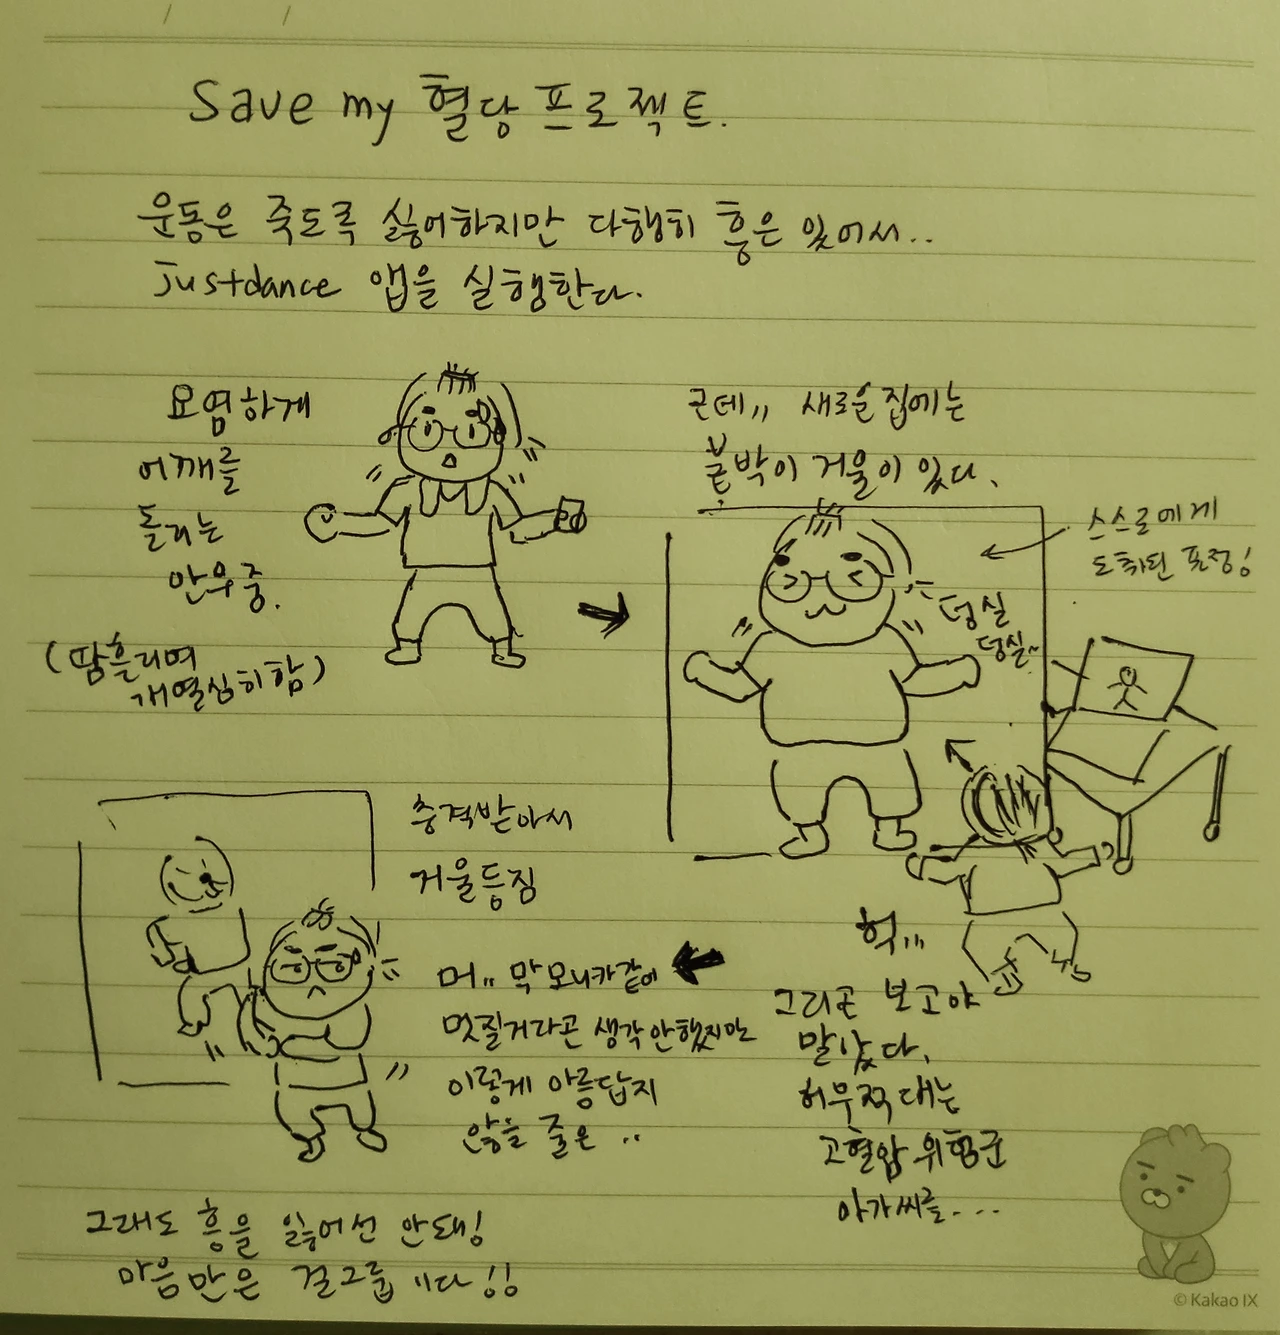 Save my 혈당 프로젝트.
운동은 죽도록 싫어하지만 다행히 흥은 있어서..
Justdance 앱을 실행한다.
요염하게
어깨를
돌리는
안우중.
(땀흘리며
개열심히함)
근데,, 새로운집에는
붙박이 거울이 있다.
스스로에게
도취된 표정!
덩실
덩실~
헉,,,
그리곤 보고야
말았다.
허우적대는
고혈압 위험군
아가씨를...
충격받아서
거울등짐
머,, 막 모니카같이
멋질거라곤 생각안했지만
이렇게 아름답지
않을 줄은 ..
그래도 흥을 잃어선 안돼!
마음만은 걸그룹이다!!
© Kakao IX